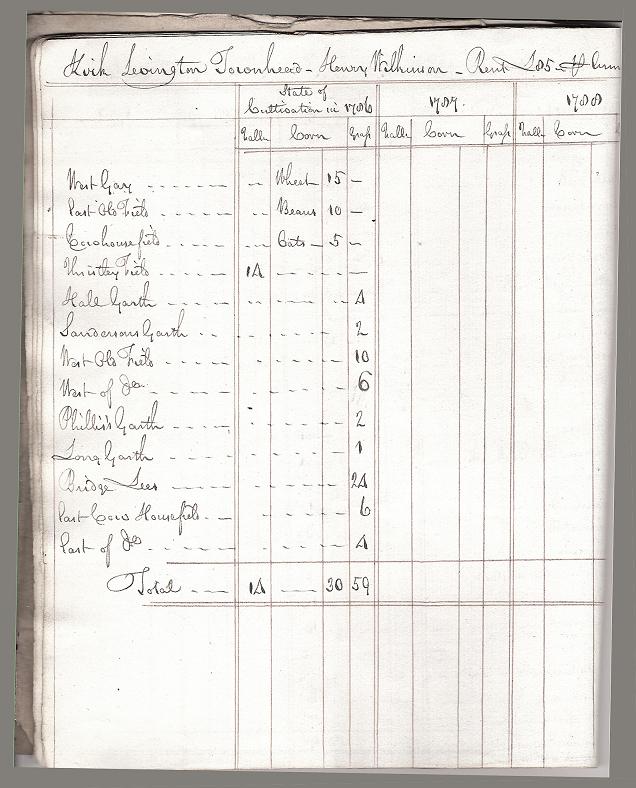 Kirk Levington Townhead - Henry Wilkinson - Rent £85 - ⅌ Ann
State of
Cultivation in 1786 1787. 1788
Fallo Corn Graſs Fallo Corn Graſs Fallo Corn
West Gay Wheat 15 -
East Old Field Beans 10 -
Cowhousefield Oats - 5 -
Thistley Field 14 -
Hall Garth 4
Sandersons Garth 2
West Old Field 10
West of Do 6
Phillis's Garth 2
Long Garth 1
Bridge Lees 24
East Cow Housefield 6
East of Do 4
Total 14 30 59